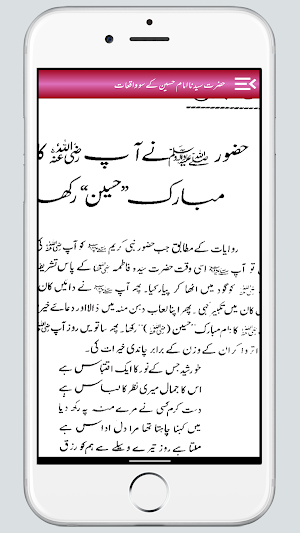 حضرت سیدنا امام حسین کے سو واقعات
حضور ﷺ نے آپ رضی اللہ عنہ کا
مبارک ”حسین“ رکھ
روایات کے مطابق جب حضور نبی کریم ﷺ کو آپ
تو آپ ﷺ اسی وقت حضرت سیدہ فاطمہ کے پاس تشریف
کو گود میں اٹھا کر پیار کیا۔ پھر آپ ﷺ نے دائیں کان
کان میں تکبیر کہی۔ پھر اپنا لعاب دہن منہ میں ڈالا اور دعائے خیر
کا نام مبارک ”حسین“ رکھا۔ پھر ساتویں روز آپ
اتروا کر ان کے وزن کے برابر چاندی خیرات کی۔
خورشید جس کے نور کا ایک اقتباس ہے
اس کا جمال میری نظر کا لباس ہے
دست کرم کسی نے مرے منہ پہ رکھ دیا
میں کہنا چاہتا تھا مرا دل اداس ہے
ملتا ہے روز تیرے وسیلے سے ہم کو رزق